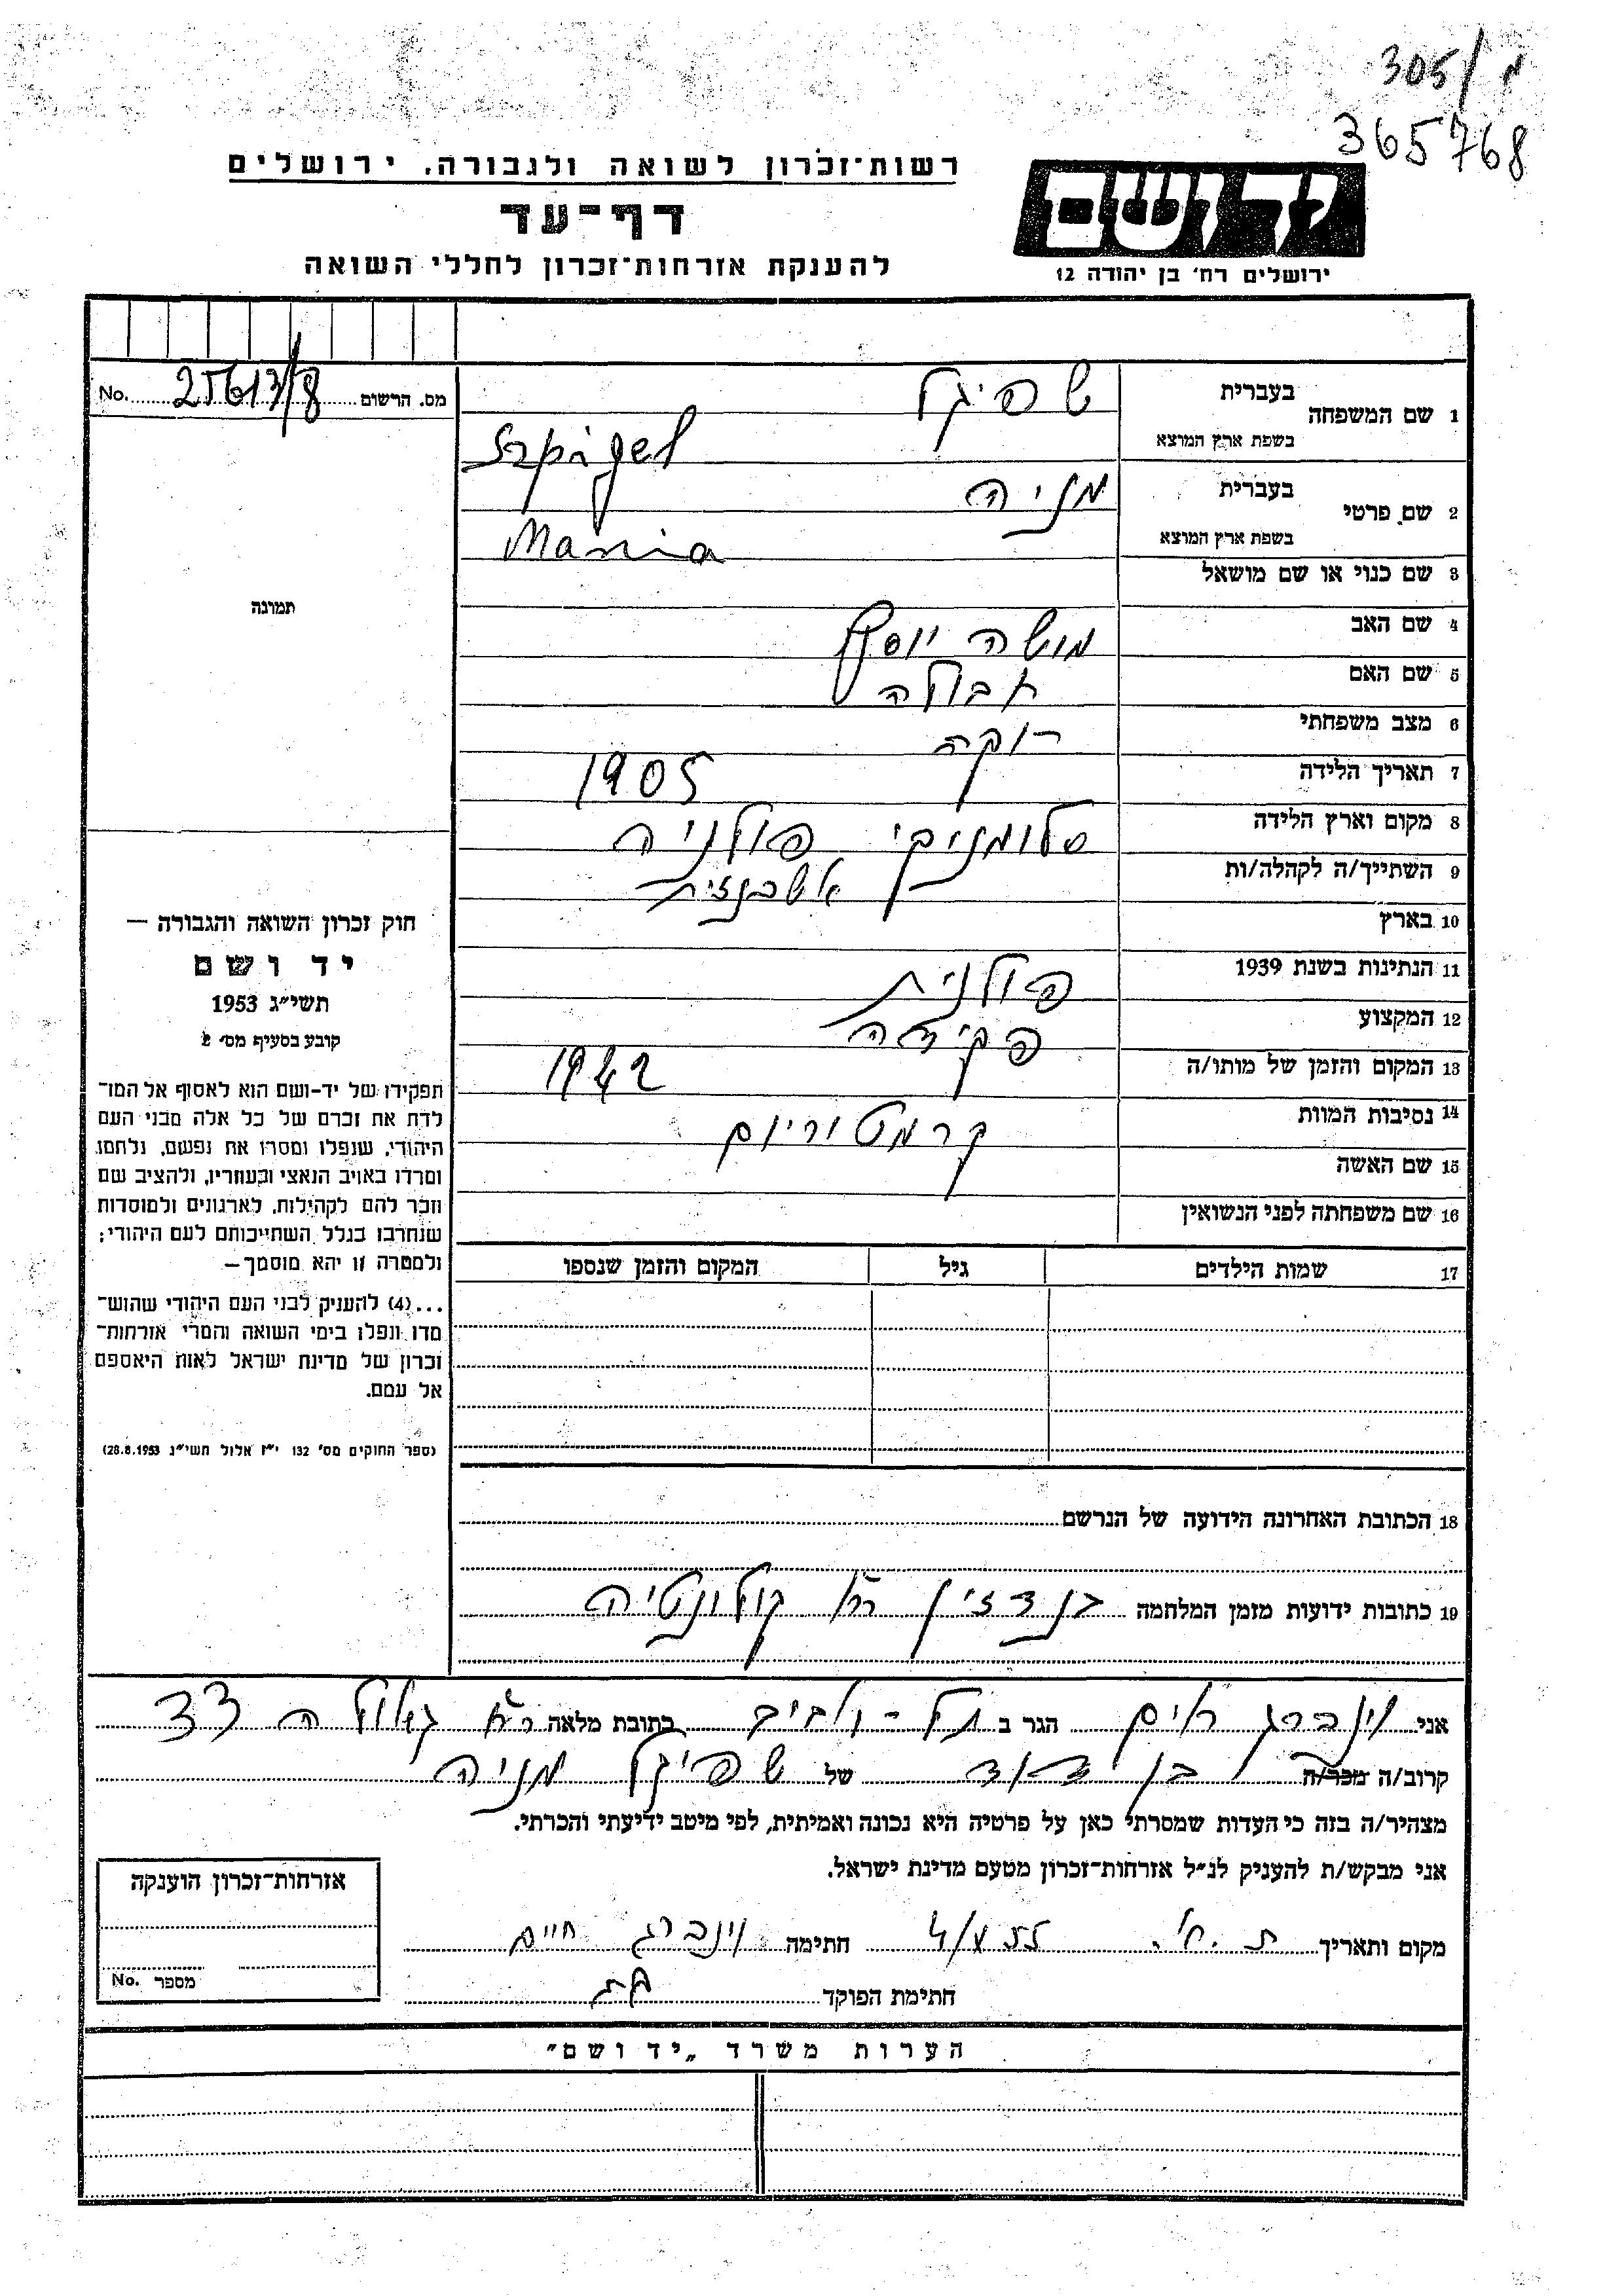 305/מ
365768
רשות-זכרון לשואה ולגבורה, ירושלים
דף-עד
להענקת אזרחות-זכרון לחללי השואה
ידושם
ירושלים רח׳ בן יהודה 12
מס. הרשום 25613/8 No.
1 שם המשפחה
בעברית שפיגל
בשפת ארץ המוצא Szpigel
2 שם פרטי
בעברית מניה
בשפת ארץ המוצא Mania
3 שם כנוי או שם מושאל
4 שם האב משה יוסף
5 שם האם
6 מצב משפחתי רוקה
7 תאריך הלידה 1905
8 מקום וארץ הלידה סלומניקי פולניה
9 השתייך/ה לקהלה/ות אשכנזית
10 בארץ
11 הנתינות בשנת 1939 פולנית
12 המקצוע פקידה
13 המקום והזמן של מותו/ה 1942
14 נסיבות המוות קרמטוריום
15 שם האשה
16 שם משפחתה לפני הנשואין
17 שמות הילדים גיל המקום והזמן שנספו
18 הכתובת האחרונה הידועה של הנרשם
19 כתובות ידועות מזמן המלחמה בנדזין רח׳ קולונטיה
תמונה
חוק זכרון השואה והגבורה —
יד ושם
תשי״ג 1953
קובע בסעיף מס׳ 2
תפקידו של יד-ושם הוא לאסוף אל המו-
לדת את זכרם של כל אלה מבני העם
היהודי, שנפלו ומסרו את נפשם, נלחמו
ומרדו באויב הנאצי ובעוזריו, ולהציב שם
וזכר להם לקהילות, לארגונים ולמוסדות
שנחרבו בגלל השתייכותם לעם היהודי;
ולמטרה זו יהא מוסמך —
...(4) להעניק לבני העם היהודי שהוש-
מדו ונפלו בימי השואה והמרי אזרחות-
זכרון של מדינת ישראל לאות היאספם
אל עמם.
(ספר החוקים מס׳ 132 י״ז אלול תשי״ג 28.8.1953)
אני וינברג חיים הגר ב תל-אביב כתובת מלאה רח׳ גאולה 33
קרוב/ה מכר/ה בן דוד של שפיגל מניה
מצהיר/ה בזה כי העדות שמסרתי כאן על פרטיה היא נכונה ואמיתית, לפי מיטב ידיעתי והכרתי.
אני מבקש/ת להעניק לנ״ל אזרחות-זכרון מטעם מדינת ישראל.
מקום ותאריך חתימה וינברג חיים
חתימת הפוקד
אזרחות-זכרון הוענקה
מספר No.
הערות משרד „יד ושם״